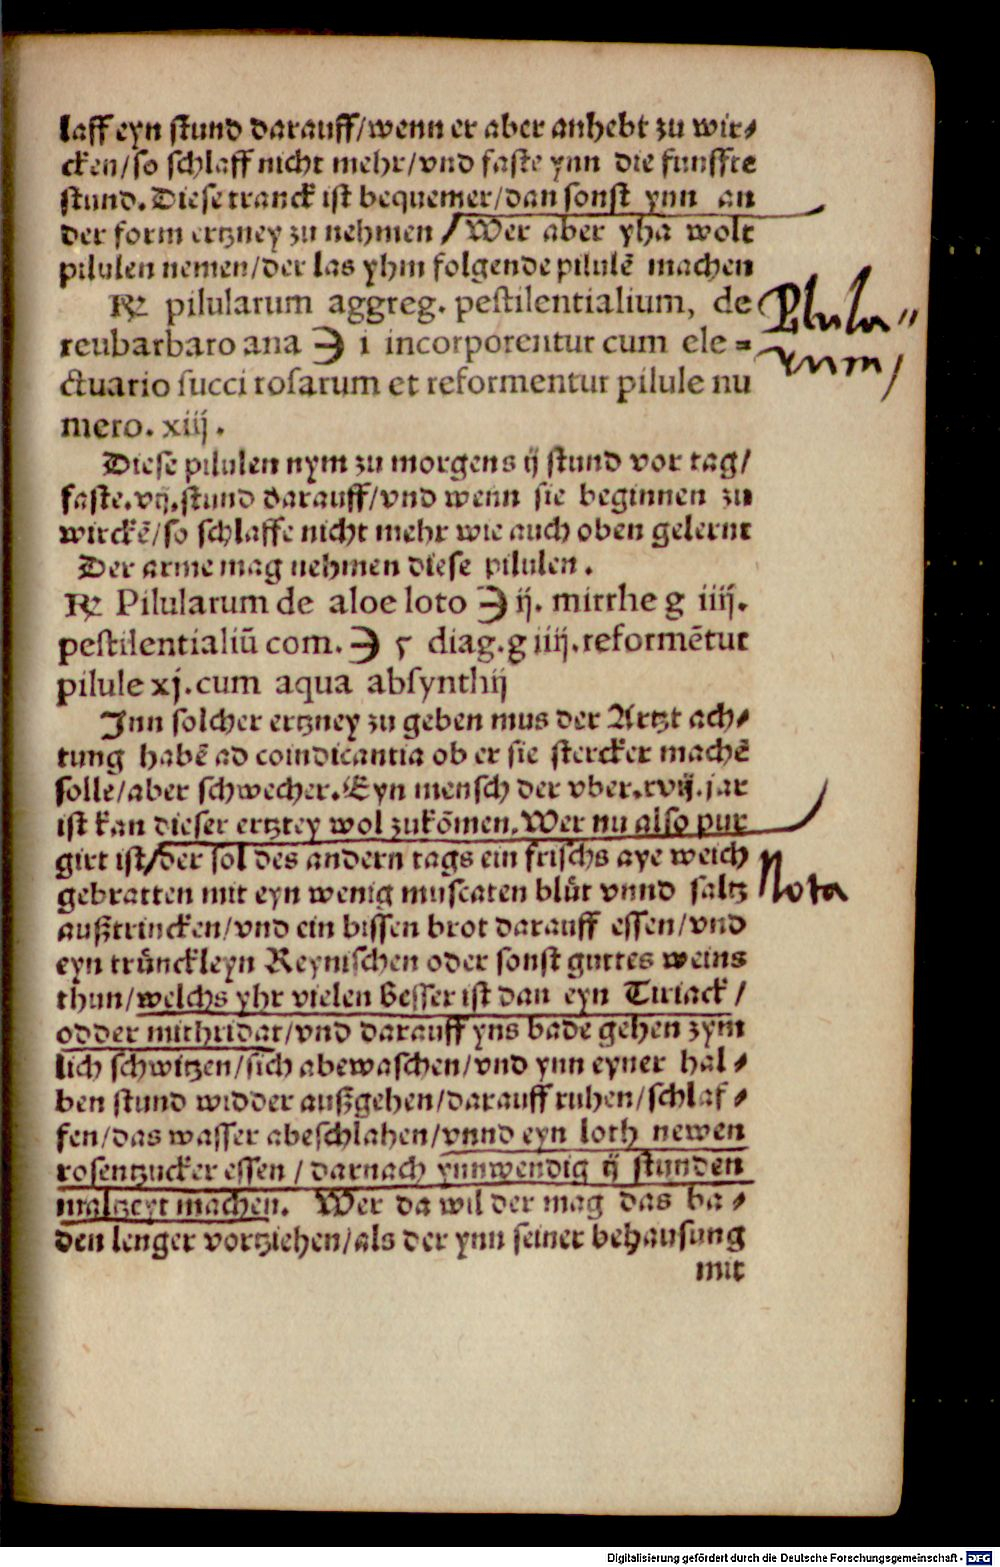 laff eyn stund darauff/wenn er aber anhebt zu wir⸗
cken/so schlaff nicht mehr/vnd faste ynn die funffte
stund. Diese tranck ist bequemer/dan sonst ynn an
der form ertzney zu nehmen / Wer aber yha wolt
pilulen nemen/der las yhm folgende pilulē machen
℞ pilularum aggreg. pestilentialium, de
reubarbaro ana ℈ i incorporentur cum ele⸗
ctuario succi rosarum et reformentur pilule nu
mero. xiij.
Pilula⸗
rum
Diese pilulen nym zu morgens ij stund vor tag/
faste.vij.stund darauff/vnd wenn sie beginnen zu
wirckē/so schlaffe nicht mehr wie auch oben gelernt
Der arme mag nehmen diese pilulen.
℞ Pilularum de aloe loto ℈ ij. mirrhe g iiij.
pestilentialiū com. ℈ ſ diag. g iiij. reformētur
pilule xj. cum aqua absynthij
Jnn solcher ertzney zu geben mus der Artzt ach⸗
tung habē ad coindicantia ob er sie stercker machē
solle/aber schwecher. Eyn mensch der vber.xvij.jar
ist kan dieser ertztey wol zukōmen. Wer nu also pur
girt ist/der sol des andern tags ein frischs aye weich
gebratten mit eyn wenig muscaten blůt vnnd saltz
Nota
außtrincken/vnd ein bissen brot darauff essen/vnd
eyn trůnckleyn Reynischen oder sonst guttes weins
thun/welchs yhr vielen besser ist dan eyn Tiriack/
odder mithridat/vnd darauff yns bade gehen zym
lich schwitzen/sich abewaschen/vnd ynn eyner hal⸗
ben stund widder außgehen/darauff ruhen/schlaf⸗
fen/das wasser abeschlahen/vnnd eyn loth newen
rosentzucker essen / darnach ynnwendig ij stunden
maltzeyt machen. Wer da wil der mag das ba⸗
den lenger vortziehen/als der ynn seiner behausung
mit
Digitalisierung gefördert durch die Deutsche Forschungsgemeinschaft - DFG